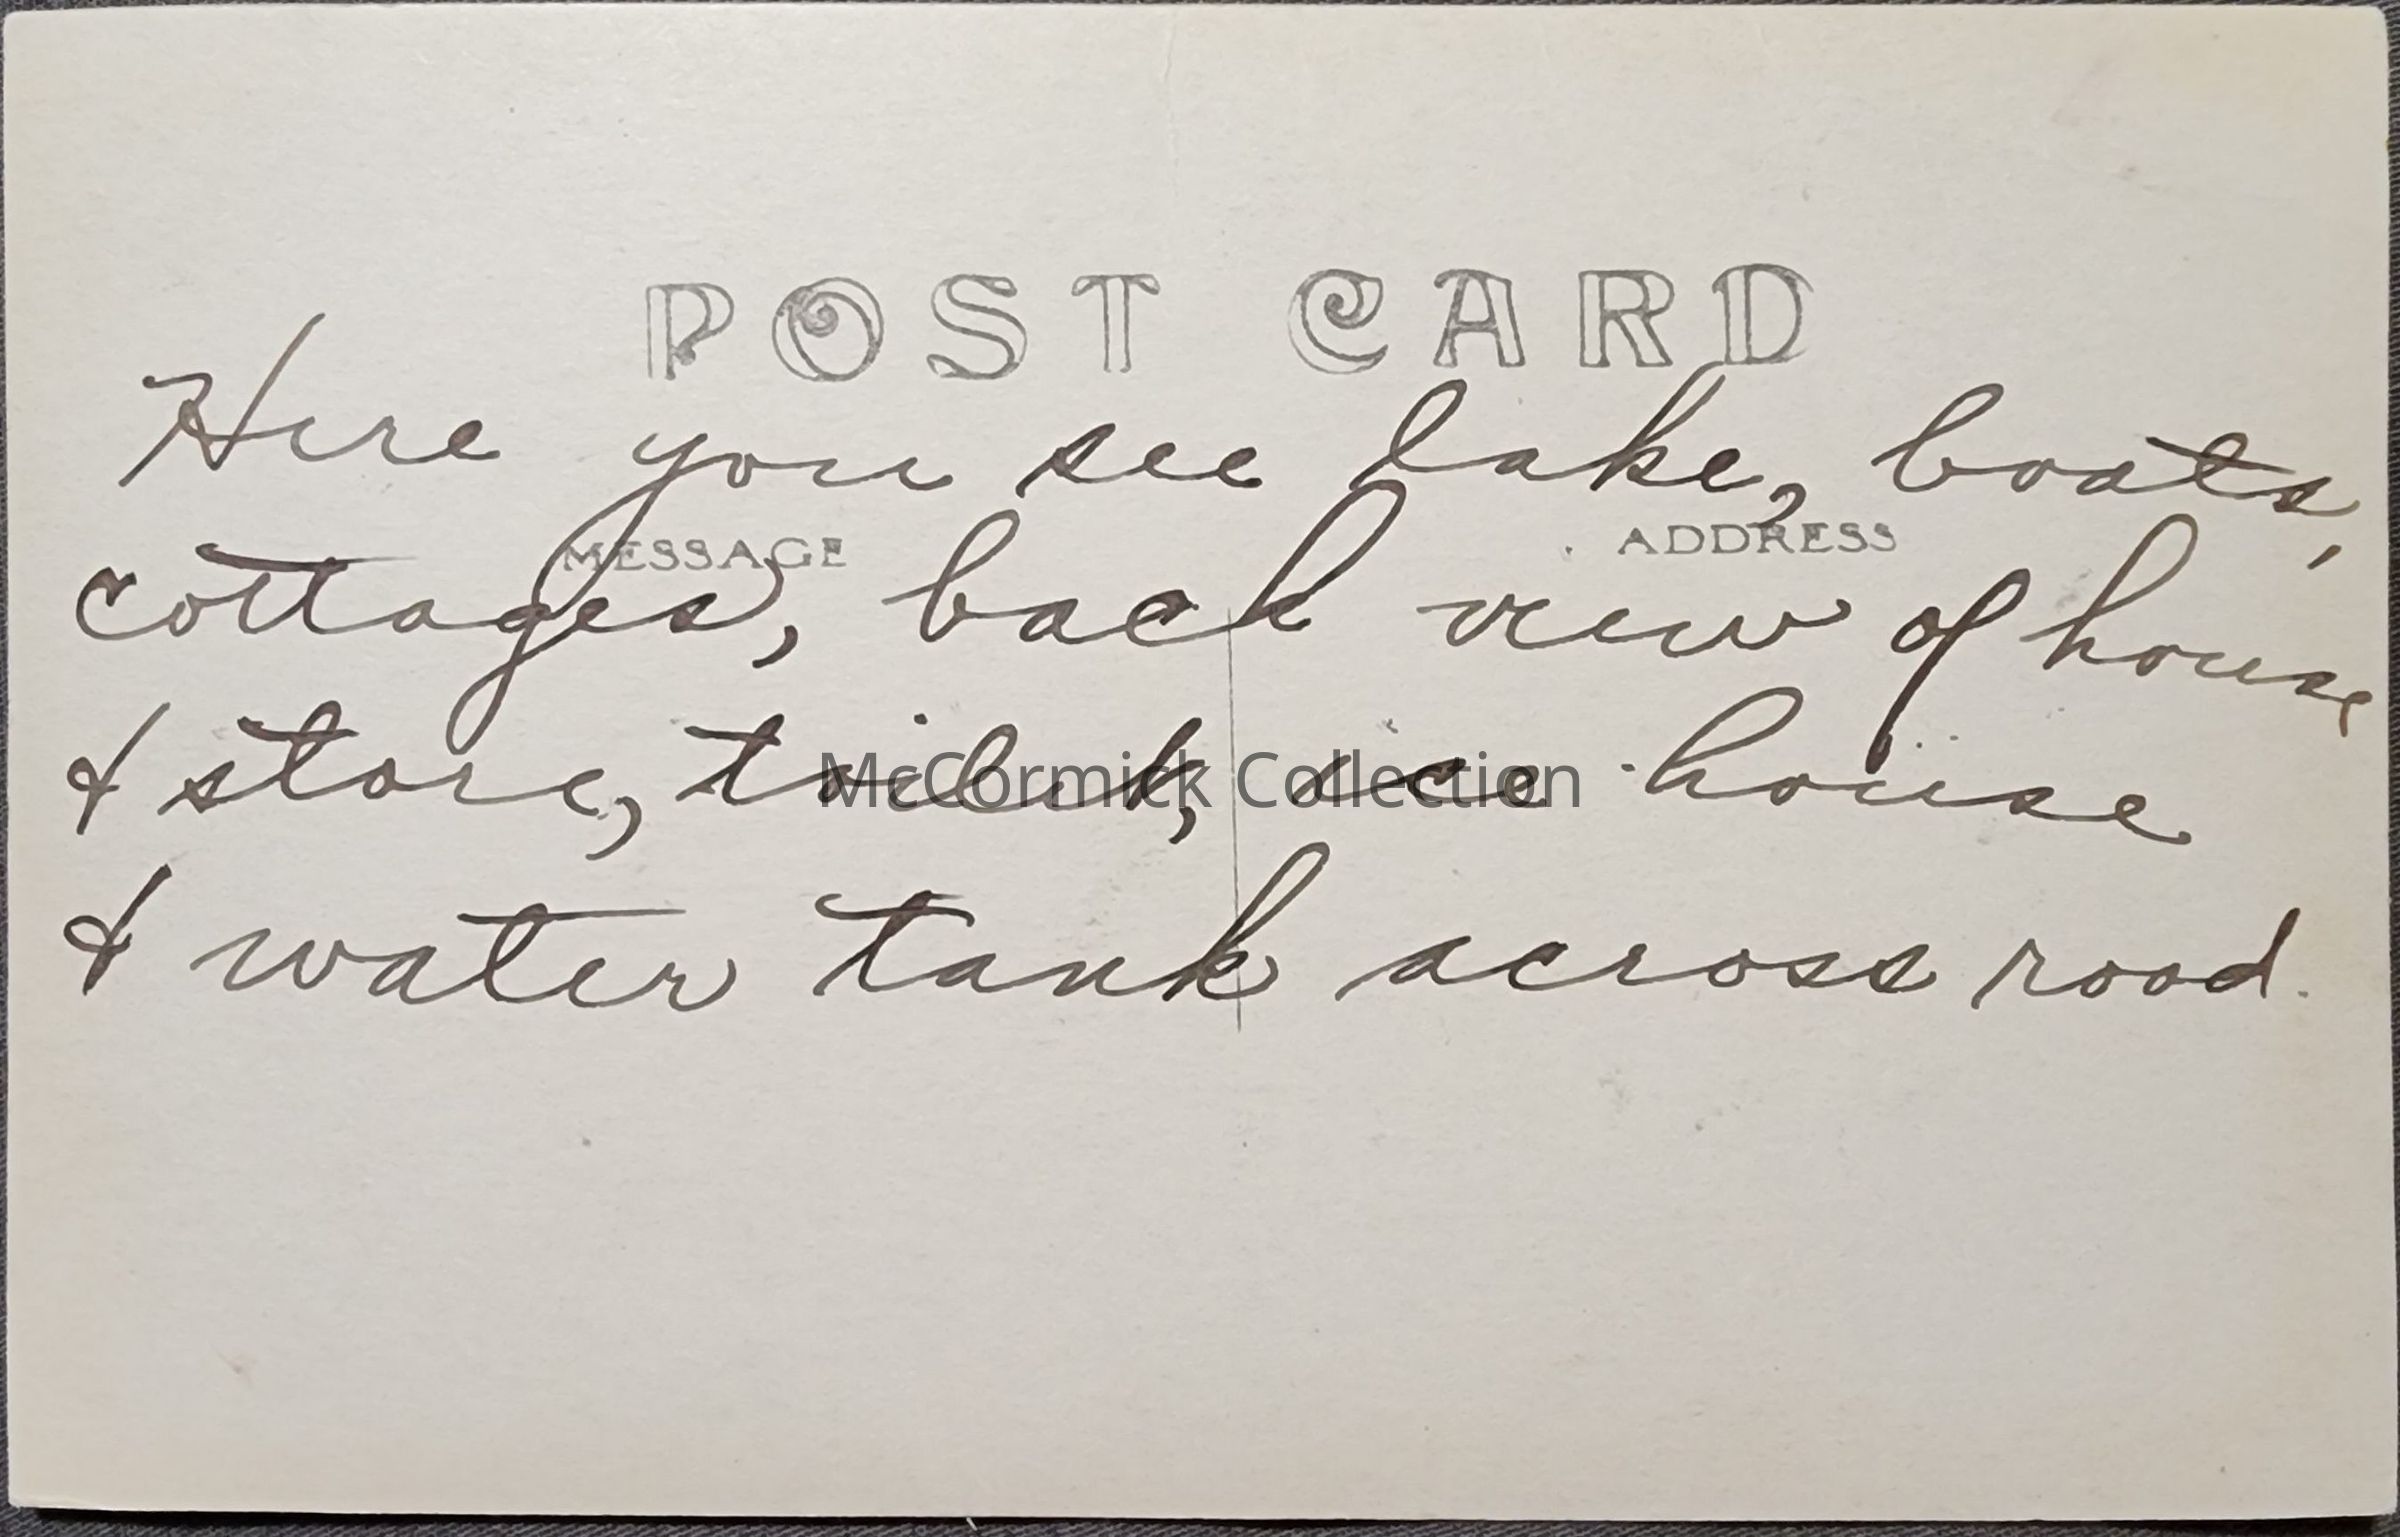 POST CARD
Here you see lake, boats,
MESSAGE
ADDRESS
cottages, back view of house
& store, toilet, ice house
McCormick Collection
& water tank across road.